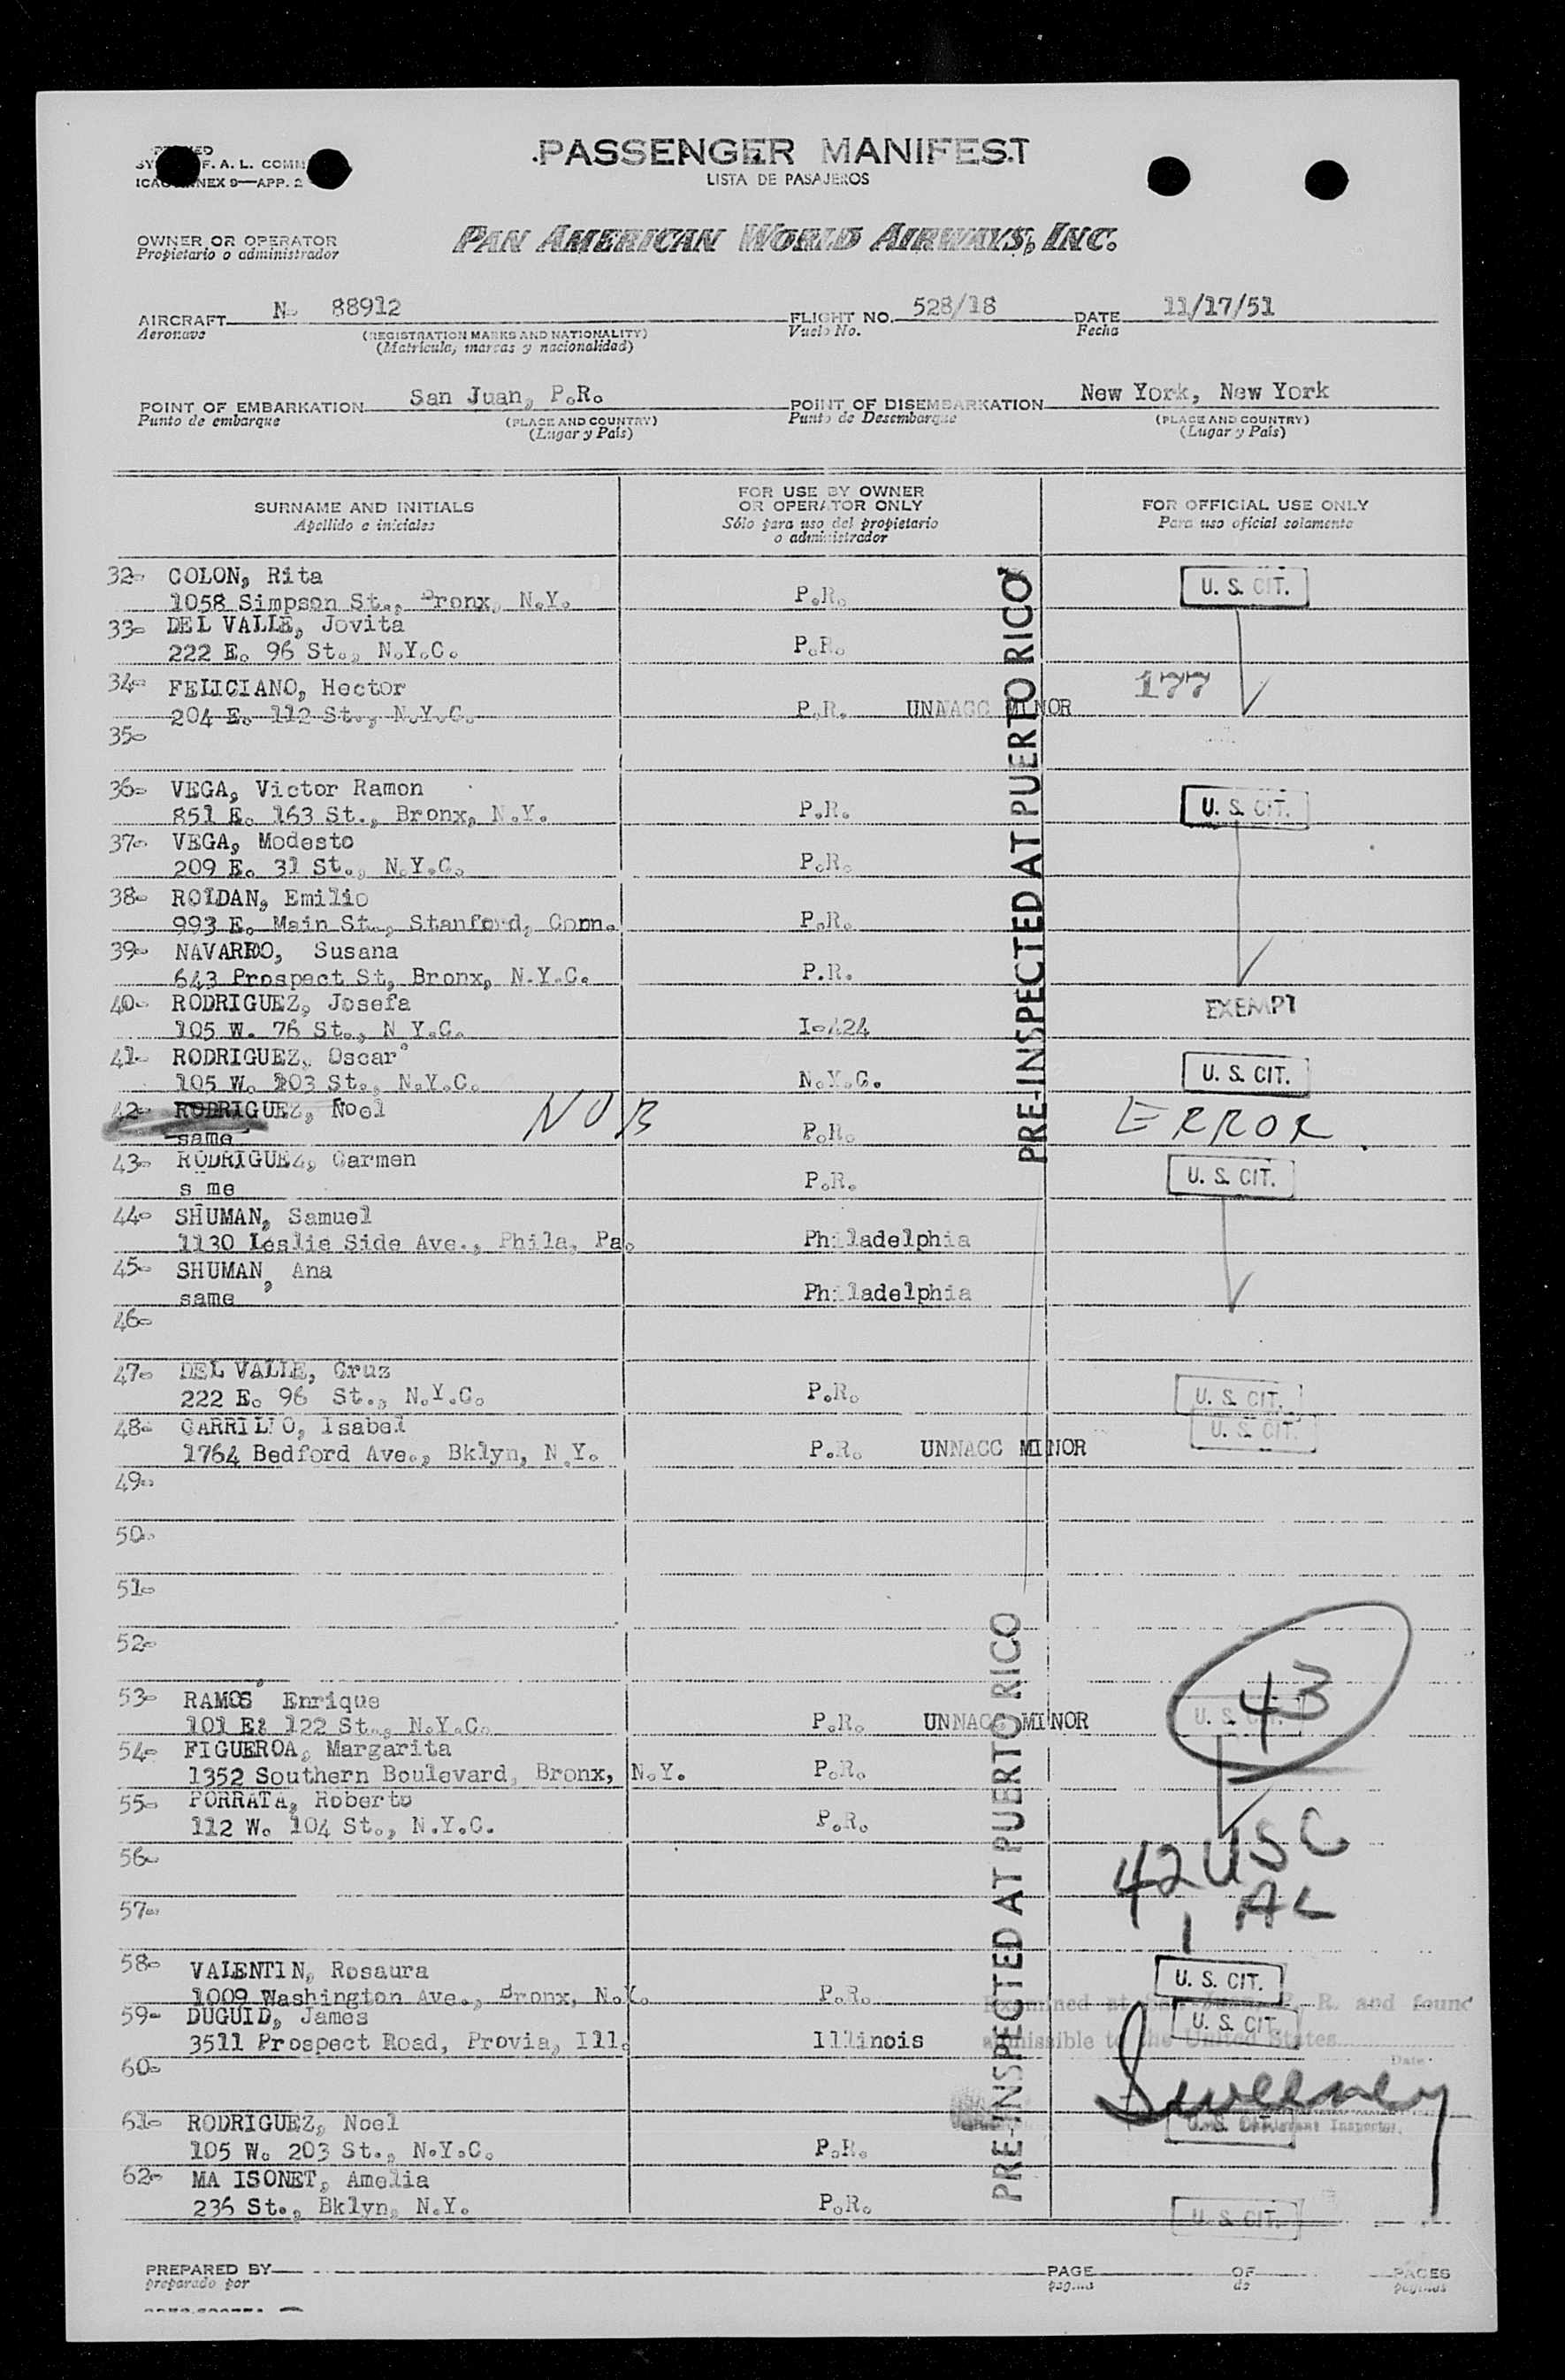 F. A. L. COMM
ICAO ANNEX 9—APP. 2
PASSENGER MANIFEST
LISTA DE PASAJEROS
OWNER OR OPERATOR
Propietario o administrador
PAN AMERICAN WORLD AIRWAYS, INC.
AIRCRAFT N- 88912 FLIGHT NO. 528/18 DATE 11/17/51
Aeronave (REGISTRATION MARKS AND NATIONALITY) Vuelo No. Fecha
(Matrícula, marcas y nacionalidad)
POINT OF EMBARKATION San Juan, P.R. POINT OF DISEMBARKATION New York, New York
Punto de embarque (PLACE AND COUNTRY) Punto de Desembarque (PLACE AND COUNTRY)
(Lugar y País) (Lugar y País)
SURNAME AND INITIALS FOR USE BY OWNER OR OPERATOR ONLY FOR OFFICIAL USE ONLY
Apellido e iniciales Sólo para uso del propietario o administrador Para uso oficial solamente
32- COLON, Rita U. S. CIT.
1058 Simpson St., Bronx, N.Y. P.R.
33- DEL VALLE, Jovita
222 E. 96 St., N.Y.C. P.R.
34- FELICIANO, Hector 177
204 E. 112 St., N.Y.C. P.R. UNNACC MINOR
35-
36- VEGA, Victor Ramon U. S. CIT.
851 E. 163 St., Bronx, N.Y. P.R.
37- VEGA, Modesto
209 E. 31 St., N.Y.C. P.R.
38- ROLDAN, Emilio
993 E. Main St., Stanford, Conn. P.R.
39- NAVARRO, Susana
643 Prospect St, Bronx, N.Y.C. P.R.
40- RODRIGUEZ, Josefa EXEMPT
105 W. 76 St., N Y.C. I-424
41- RODRIGUEZ, Oscar U. S. CIT.
105 W. 103 St., N.Y.C. N.Y.C.
42- RODRIGUEZ, Noel NOB ERROR
same P.R.
43- RODRIGUEZ, Carmen U. S. CIT.
s me P.R.
44- SHUMAN, Samuel
1130 Leslie Side Ave., Phila, Pa. Philadelphia
45- SHUMAN, Ana
same Philadelphia
46-
47- DEL VALLE, Cruz
222 E. 96 St., N.Y.C. P.R. U. S. CIT.
48- CARRILLO, Isabel U. S. CIT.
1764 Bedford Ave., Bklyn, N.Y. P.R. UNNACC MINOR
49-
50-
51-
52-
53- RAMOS Enrique 43
101 E. 122 St., N.Y.C. P.R. UNNACC MINOR U. S. CIT.
54- FIGUEROA, Margarita
1352 Southern Boulevard, Bronx, N.Y. P.R.
55- PORRATA, Roberto
112 W. 104 St., N.Y.C. P.R.
56- 42 USC
57- 1 AL
58- VALENTIN, Rosaura U. S. CIT.
1009 Washington Ave., Bronx, N.Y. P.R. Examined at San Juan, P. R. and found
59- DUGUID, James U. S. CIT.
3511 Prospect Road, Provia, Ill. Illinois admissible to the United States
60- Date
Sweeney
61- RODRIGUEZ, Noel U. S. CIT. Inspector.
105 W. 203 St., N.Y.C. P.R.
62- MA ISONET, Amelia
236 St., Bklyn, N.Y. P.R. U. S. CIT.
PRE-INSPECTED AT PUERTO RICO
PRE-INSPECTED AT PUERTO RICO
PREPARED BY PAGE OF PAGES
preparado por página de páginas